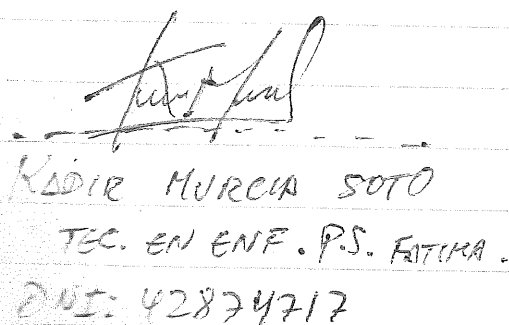 KADIR MURCIA SOTO
TEC. EN ENF. P.S. FATIMA.
DNI: 42874717